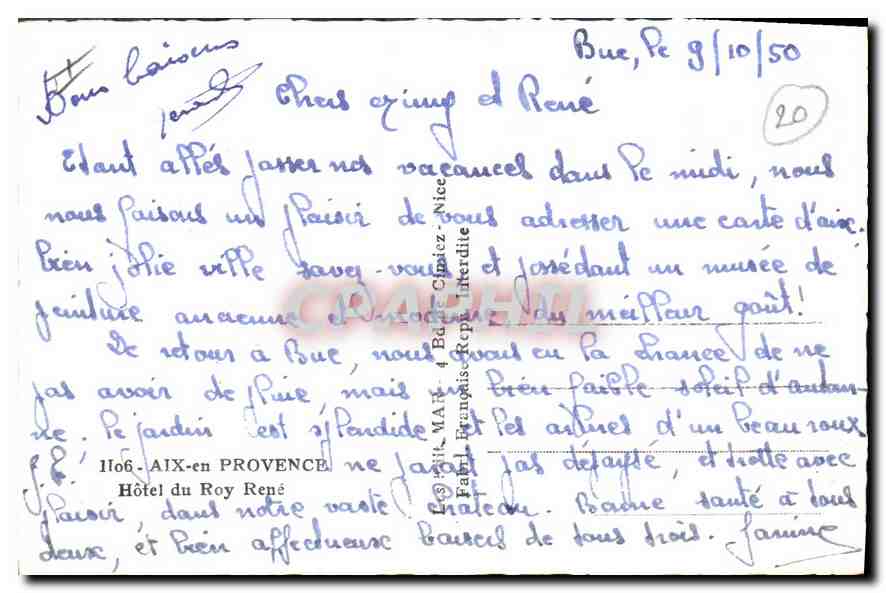 Buc, le 9/10/50
Bons baisers
20
Chers et René
Etant allés passer nos vacances dans le midi, nous
nous faisons un plaisir de vous adresser une carte d'aix.
bien jolie ville savez-vous et possédant un musée de
peinture ancienne et moderne du meilleur goût!
De retour à Buc, nous avons eu la chance de ne
pas avoir de pluie, mais un bien faible soleil d'autom-
ne. le jardin est splendide et les arbres d'un beau roux
ne parait pas dépaysé, et trotte avec
plaisir, dans notre vaste château. Bonne santé à tous
deux, et bien affectueux baisers de tous trois. Janine
1106 - AIX-en PROVENCE
Hôtel du Roy René
Les Edit. MAR - 4 Bd de Cimiez - Nice
Fabr. Française Repr. Interdite
CPARHTI